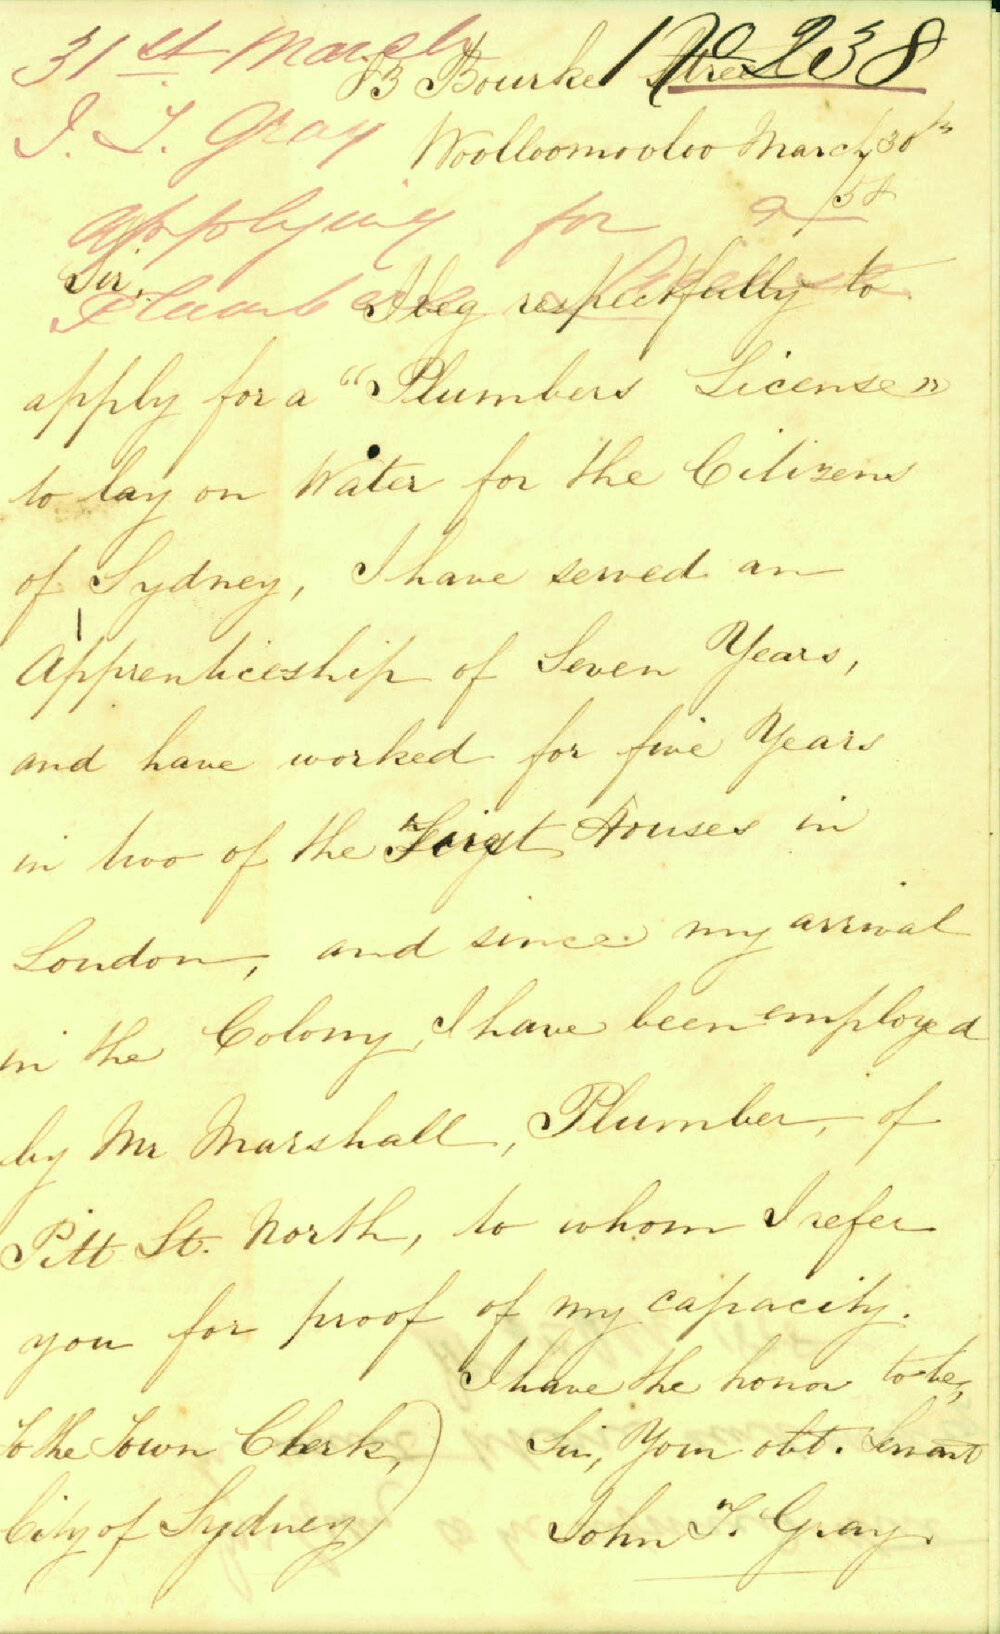 31st March
No 238
J. T. Gray
applying for a
Plumbers License
83 Bourke Street
Woolloomooloo March 30th
/58
Sir,
I beg respectfully to
apply for a "Plumbers License"
to lay on Water for the Citizens
of Sydney, I have served an
Apprenticeship of Seven Years,
and have worked for five Years
in two of the First Houses in
London, and since my arrival
in the Colony, I have been employed
by Mr Marshall, Plumber, of
Pitt St. North, to whom I refer
you for proof of my capacity.
I have the honor to be,
Sir, Your obt. Servant
John T. Gray.
To the Town Clerk,
City of Sydney